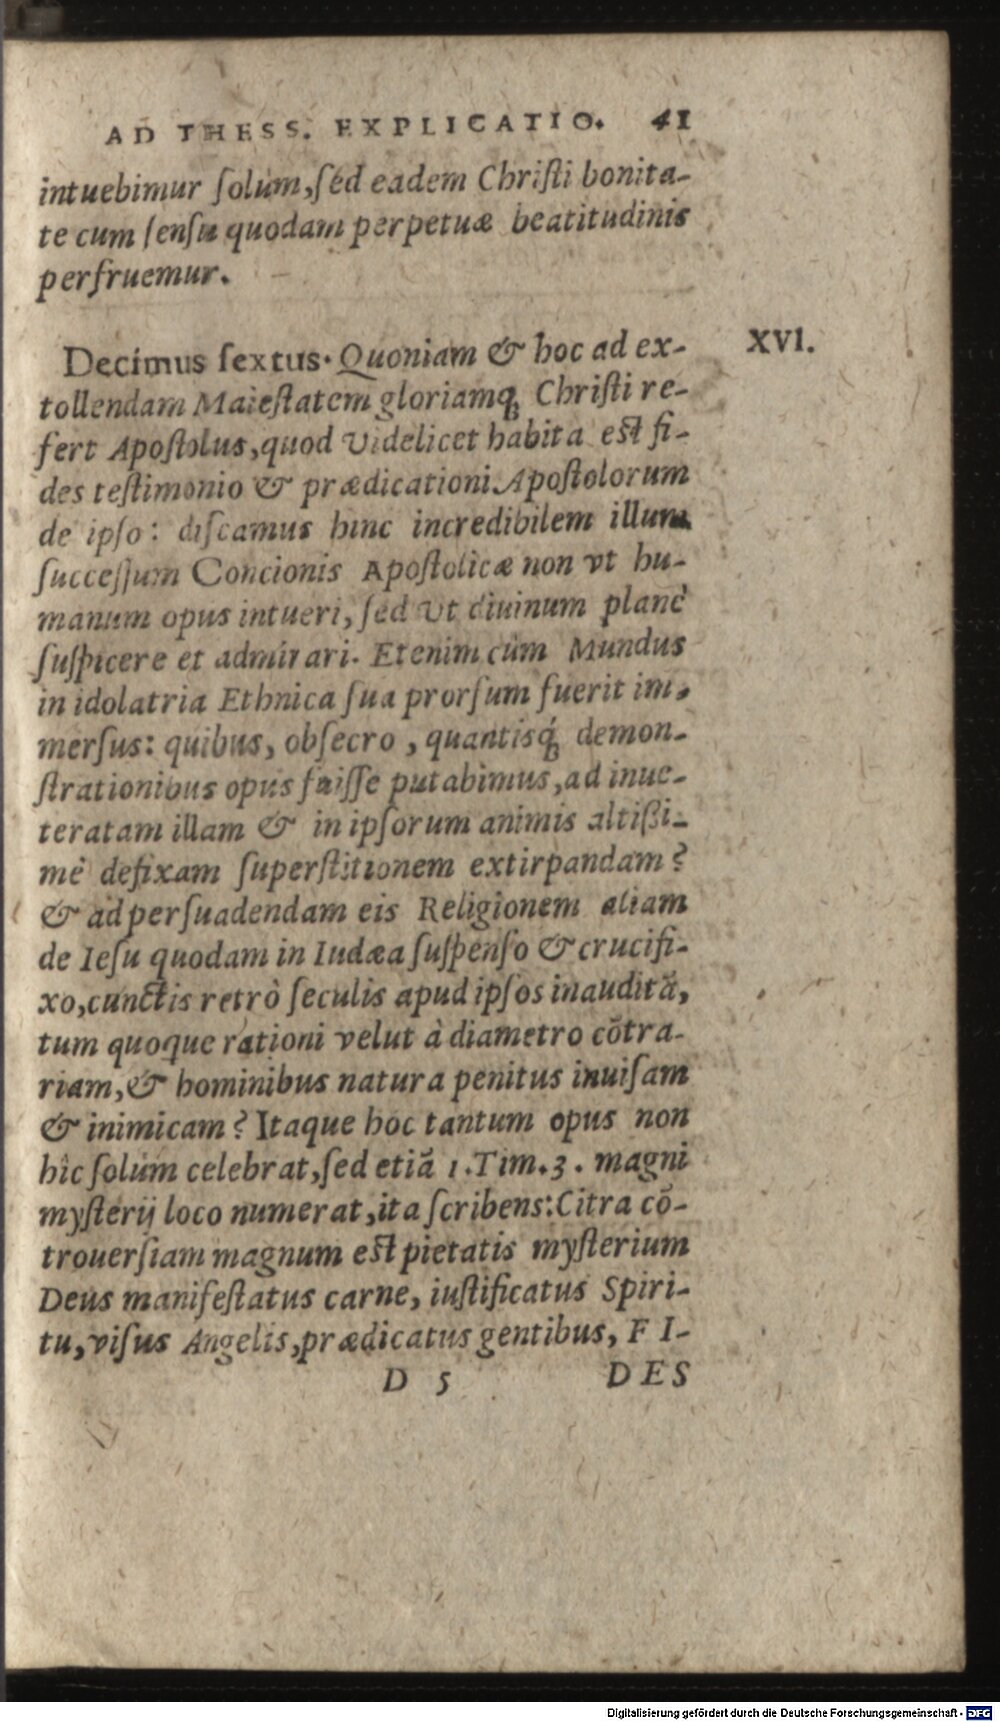 AD THESS. EXPLICATIO. 41
intuebimur ſolùm, ſed eadem Chriſti bonita-
te cum ſenſu quodam perpetuæ beatitudinis
perfruemur.
Decimus ſextus. Quoniam & hoc ad ex-
XVI.
tollendam Maieſtatem gloriamq́; Chriſti re-
fert Apoſtolus, quod videlicet habita eſt fi-
des teſtimonio & prædicationi Apoſtolorum
de ipſo: diſcamus hinc incredibilem illum
ſucceſſum Concionis Apoſtolicæ non vt hu-
manum opus intueri, ſed vt diuinum planè
ſuſpicere et admirari. Etenim cùm Mundus
in idolatria Ethnica ſua prorſum fuerit im-
merſus: quibus, obſecro, quantisq́; demon-
ſtrationibus opus fuiſſe putabimus, ad inue-
teratam illam & in ipſorum animis altißi-
mè defixam ſuperſtitionem extirpandam?
& ad perſuadendam eis Religionem aliam
de Ieſu quodam in Iudæa ſuſpenſo & crucifi-
xo, cunctis retrò ſeculis apud ipſos inauditã,
tum quoque rationi velut à diametro cõtra-
riam, & hominibus natura penitus inuiſam
& inimicam? Itaque hoc tantum opus non
hîc ſolùm celebrat, ſed etiã 1. Tim. 3. magni
myſterij loco numerat, ita ſcribens: Citra cõ-
trouerſiam magnum eſt pietatis myſterium
Deus manifeſtatus carne, iuſtificatus Spiri-
tu, viſus Angelis, prædicatus gentibus, F I-
D 5 DES
Digitalisierung gefördert durch die Deutsche Forschungsgemeinschaft - DFG